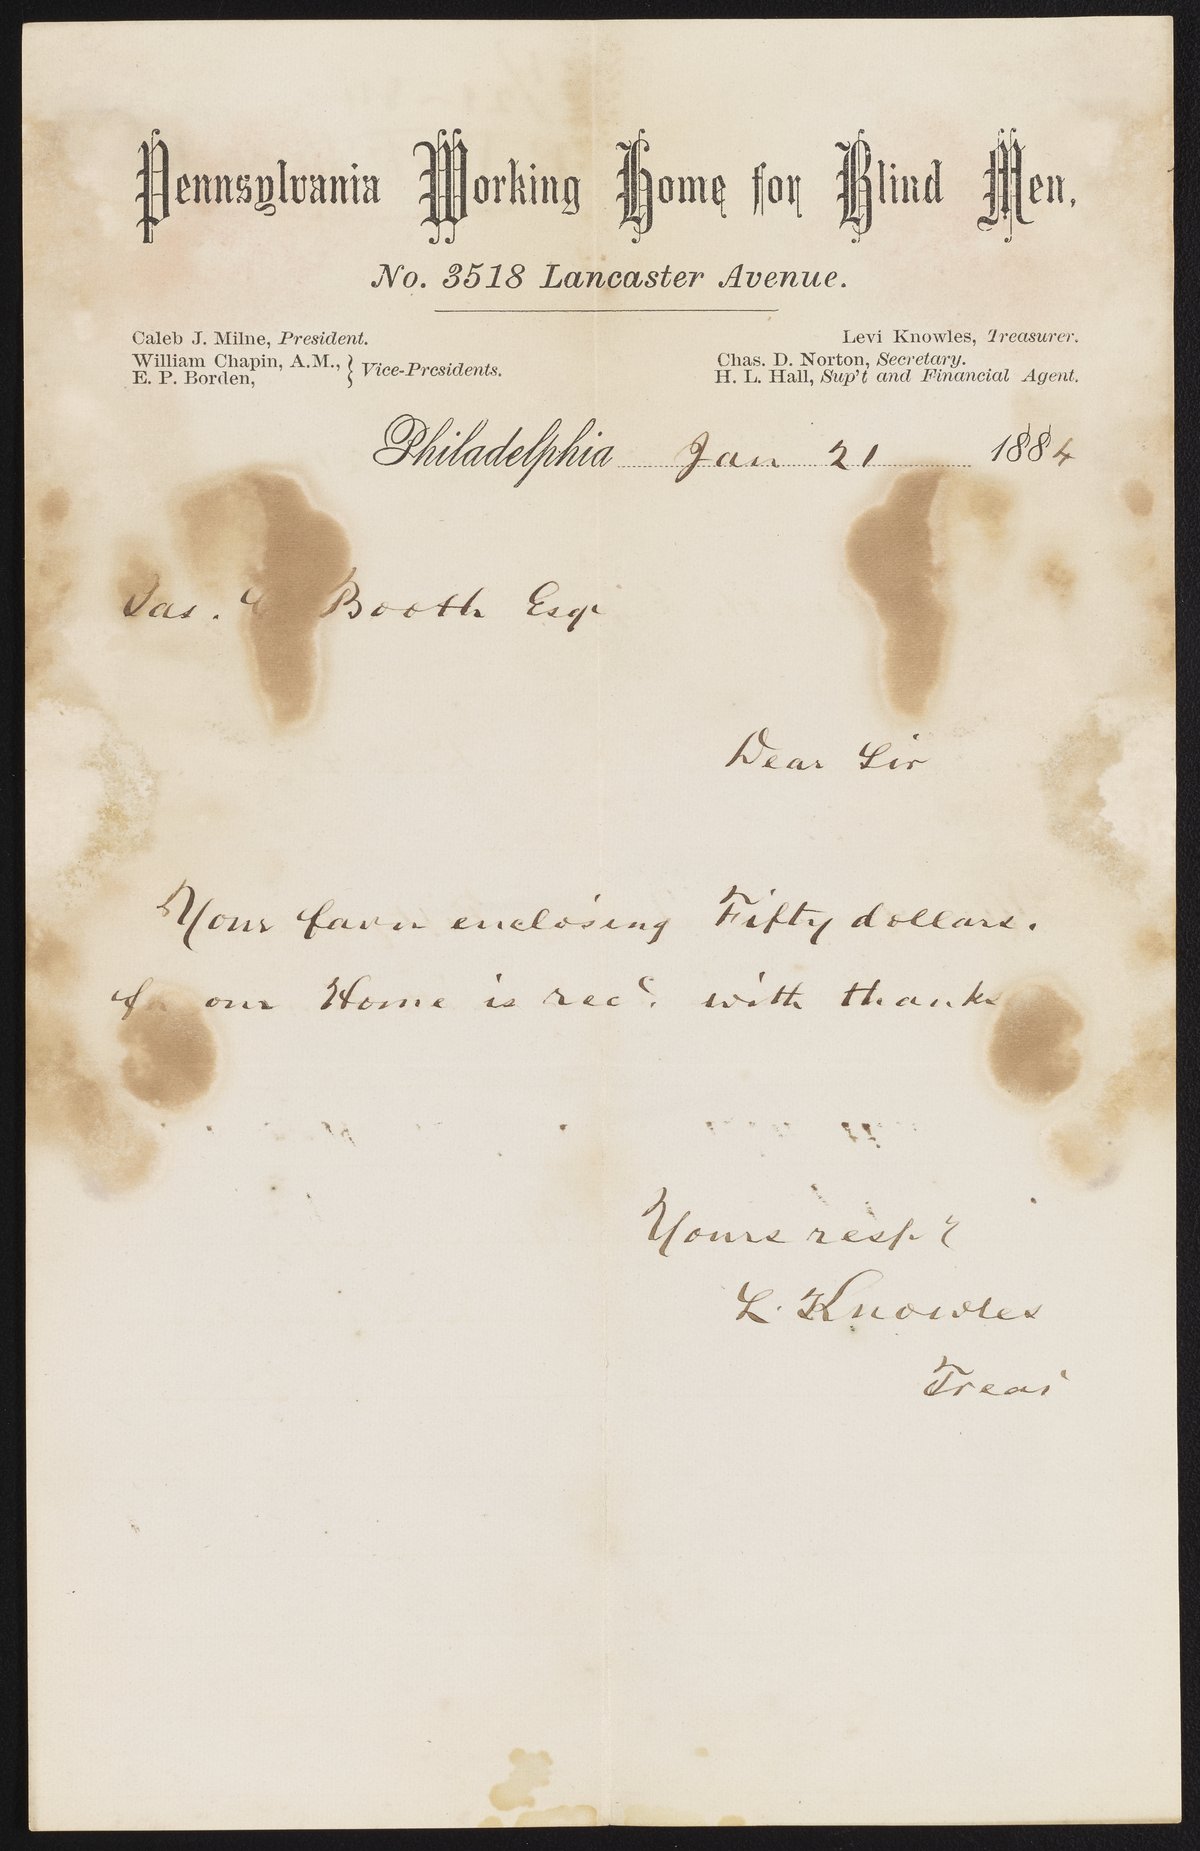 Pennsylvania Working Home for Blind Men,
No. 3518 Lancaster Avenue.
Caleb J. Milne, President.
William Chapin, A.M.,
E. P. Borden,
} Vice-Presidents.
Levi Knowles, Treasurer.
Chas. D. Norton, Secretary.
H. L. Hall, Sup't and Financial Agent.
Philadelphia Jan 21 1884
Jas. Booth Esqr
Dear Sir
Your favor enclosing Fifty dollars.
for our Home is recd. with thanks
Yours resp.y
L. Knowles
Treas